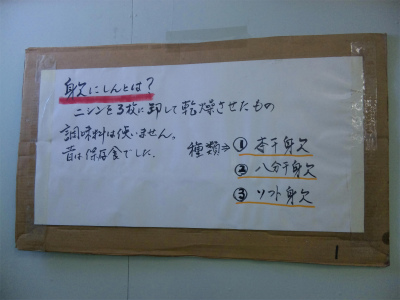 身欠にしんとは?
ニシンを3枚に卸して乾燥させたもの
調味料は使いません。
昔は保存食でした。
種類⇒ ① 本干身欠
② 八分干身欠
③ ソフト身欠